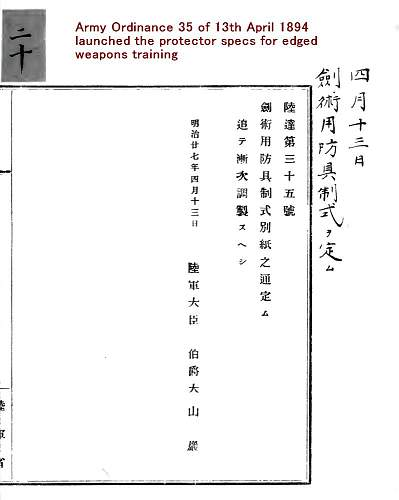 二十
Army Ordinance 35 of 13th April 1894
launched the protector specs for edged
weapons training
四月十三日
劍術用防具制式ヲ定ム
陸達第三十五號
劍術用防具制式別紙之通定ム
追テ漸次調製スヘシ
明治廿七年四月十三日
陸軍大臣 伯爵大山巖
陸軍省